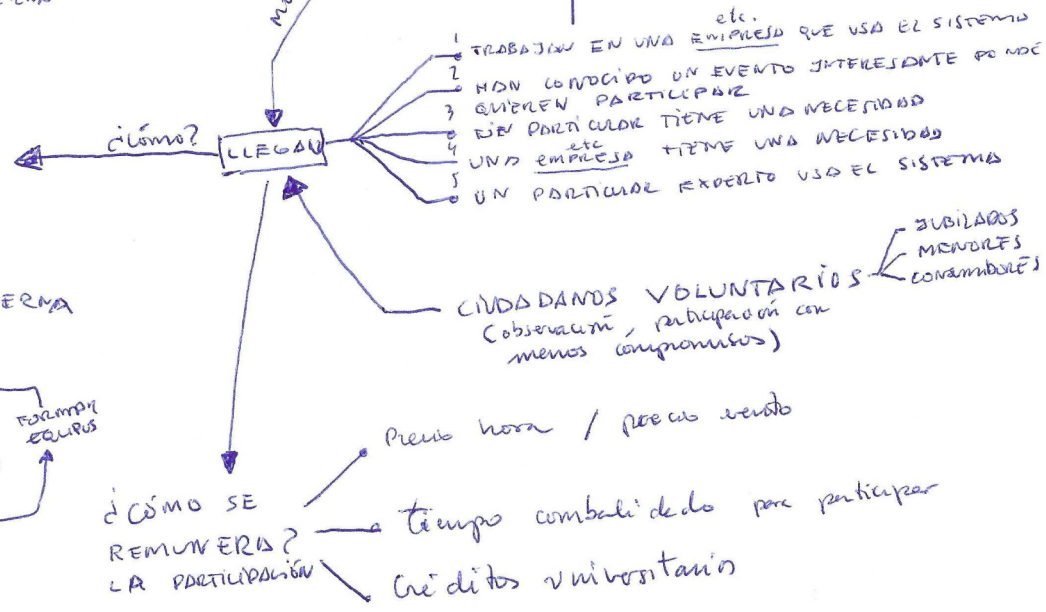 etc.
1 TRABAJAN EN UNA EMPRESA QUE USA EL SISTEMA
2 HAN CONOCIDO UN EVENTO INTERESANTE DONDE
QUIEREN PARTICIPAR
3 UN PARTICULAR TIENE UNA NECESIDAD
etc
4 UNA EMPRESA TIENE UNA NECESIDAD
5 UN PARTICULAR EXPERTO USA EL SISTEMA
¿Cómo?
LLEGAN
JUBILADOS
MENORES
CONSUMIDORES
CIUDADANOS VOLUNTARIOS
(observación, participación con
menos compromisos)
ERNA
FORMAR
EQUIPOS
Precio hora / precio evento
¿CÓMO SE
REMUNERA?
LA PARTICIPACIÓN
tiempo combalidado para participar
Créditos universitarios